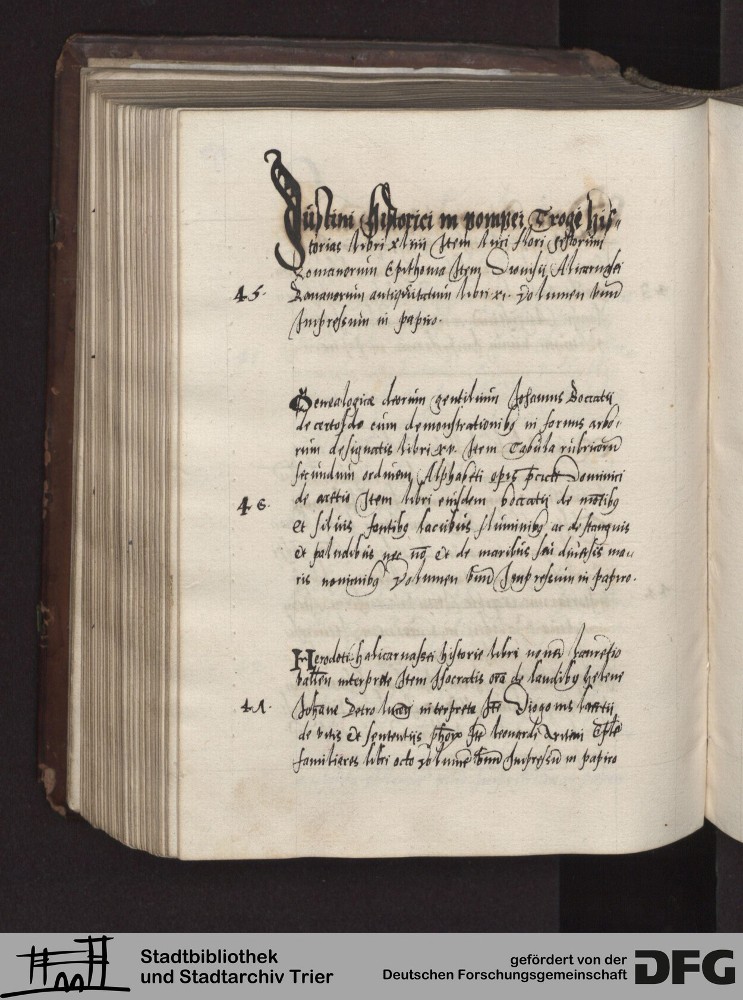 Justini historici in pompei Trogi his-
torias libri xliiii Item luci flori historiarum
Romanorum Epithoma Item Dionisii Alicarnasei
45. Romanorum antiquitatum libri xi. Volumen unum
Impressum in papiro.
Genealogiæ deorum gentilium Johannis Boccatii
de certoldo cum demonstrationibus in formis arbo-
rum designatis libri xv. Item Tabula rubricarum
secundum ordinem Alphabeti Dominici
46. de aretio Item libri eiusdem boccatii de montibus
et siluis fontibus lacubus fluminibus ac de stangnis
et paludibus nec nō et de maribus seu diuersis ma-
ris nominibus Volumen unum Impressum in papiro.
Herodoti halicarnassei historie libri nouem laurentio
vallen interprete Item Isocratis orō de laudibus helene
47. Johane Petro interprete Itē Diogenis laertii
de vitis et sententiis phōrū Itē leonardi Aretini Eplē
familiares libri octo volumē unum Impressū in papiro
Stadtbibliothek
und Stadtarchiv Trier
gefördert von der
Deutschen Forschungsgemeinschaft
DFG